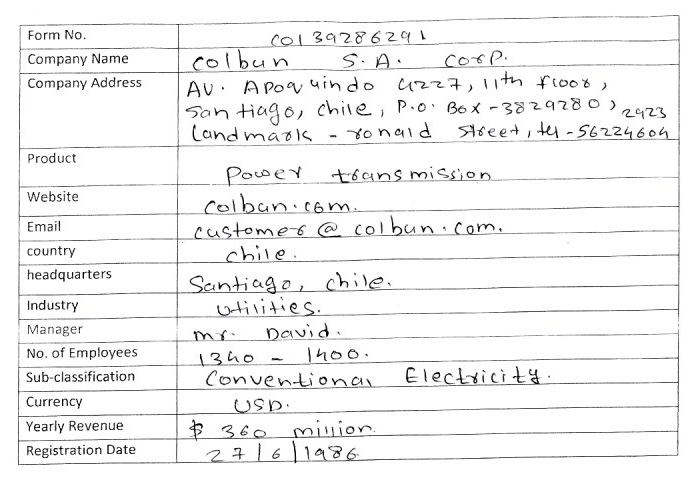 Form No. CO139286291
Company Name Colbun S.A. Corp.
Company Address AV. Apoquindo 4227, 11th floor,
Santiago, Chile, P.O. Box - 3829280, 2923
Landmark - ronald street, tel - 56224604
Product Power transmission
Website Colbun.com.
Email customer@colbun.com.
country Chile.
headquarters Santiago, Chile.
Industry Utilities.
Manager Mr. David.
No. of Employees 1340 - 1400.
Sub-classification Conventional Electricity.
Currency USD.
Yearly Revenue $ 360 million.
Registration Date 27/6/1986